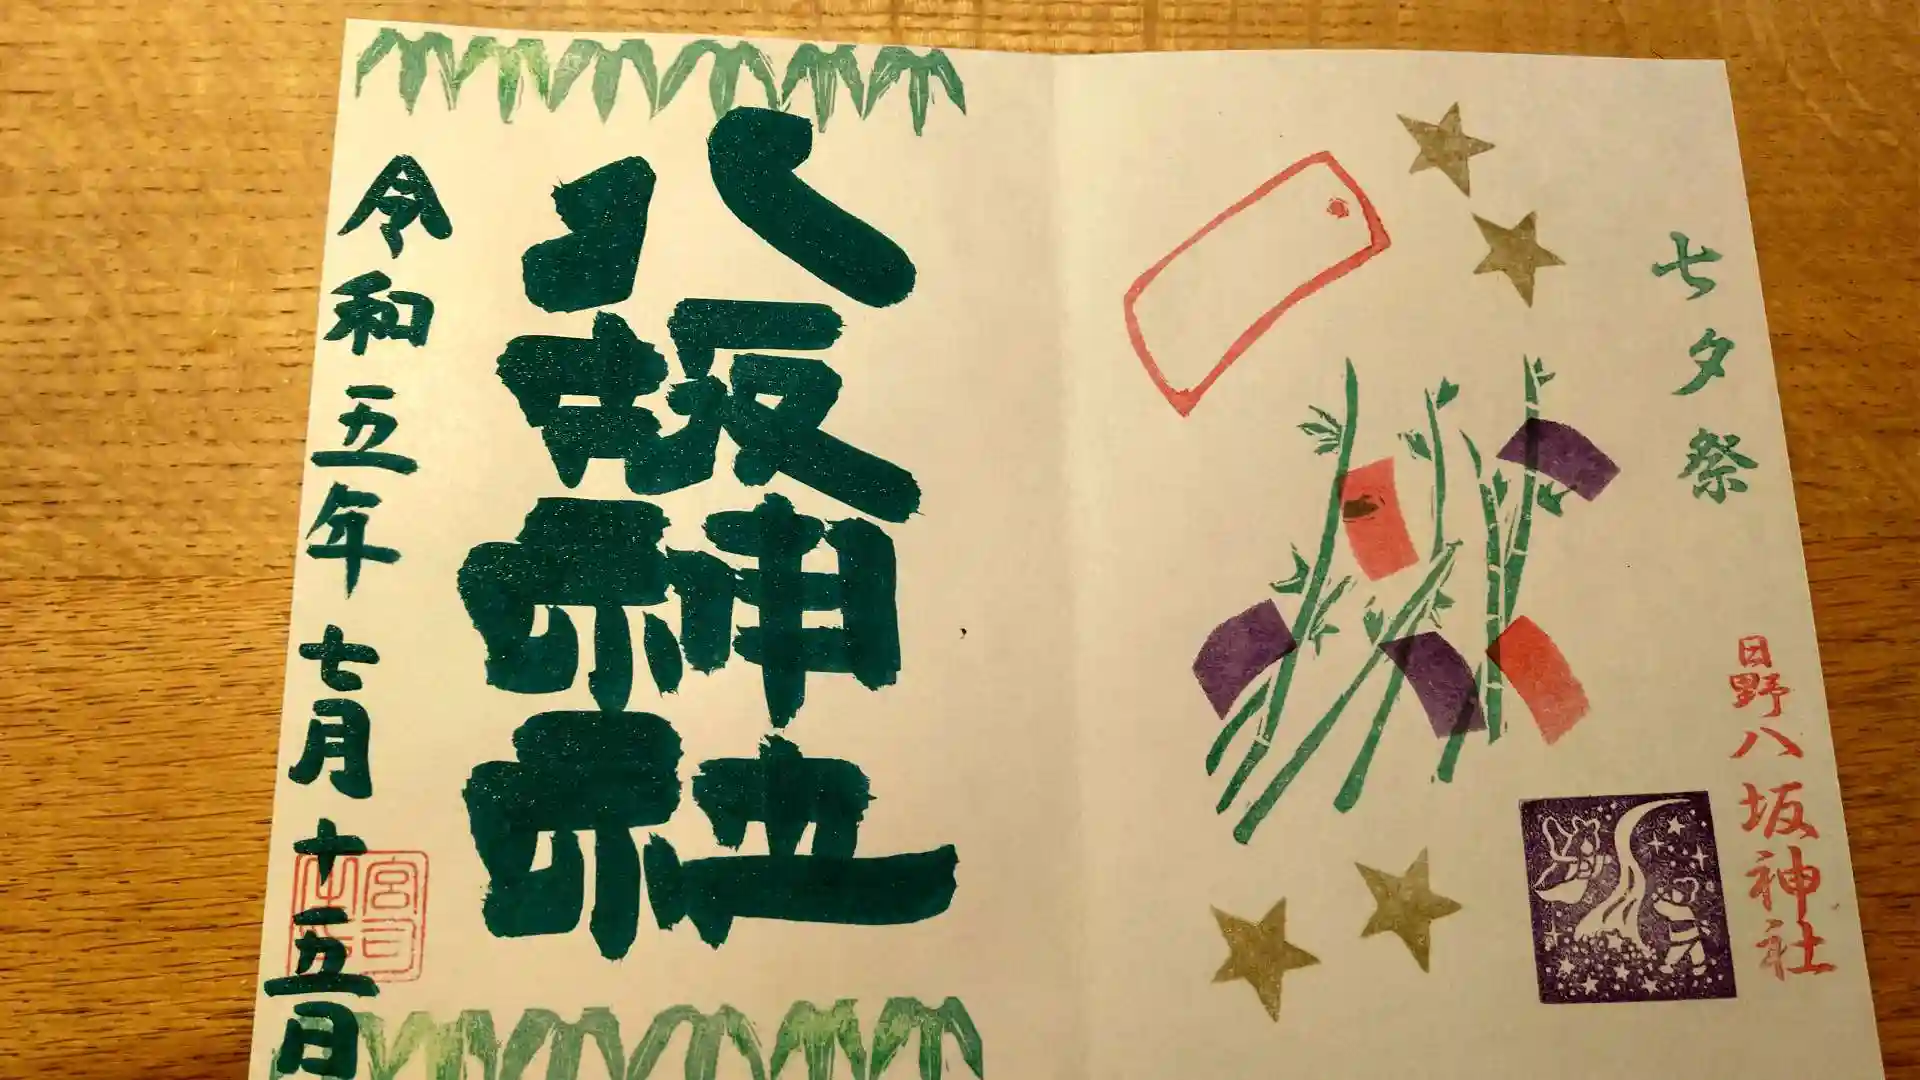 七夕祭
日野八坂神社
八坂神社
令和五年七月十五日